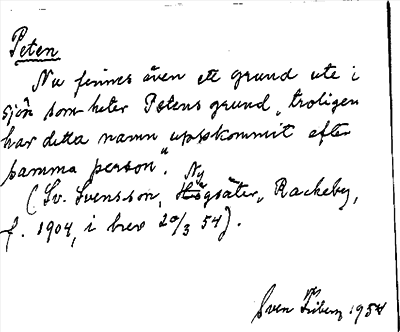 Peten
Nu finnes även ett grund ute i
sjön som heter Petens grund, "troligen
har detta namn uppkommit efter
samma person".
(Sv. Svensson, Nysäter, Rackeby,
f. 1904, i brev 20/3 54).
Sven Friberg 1954